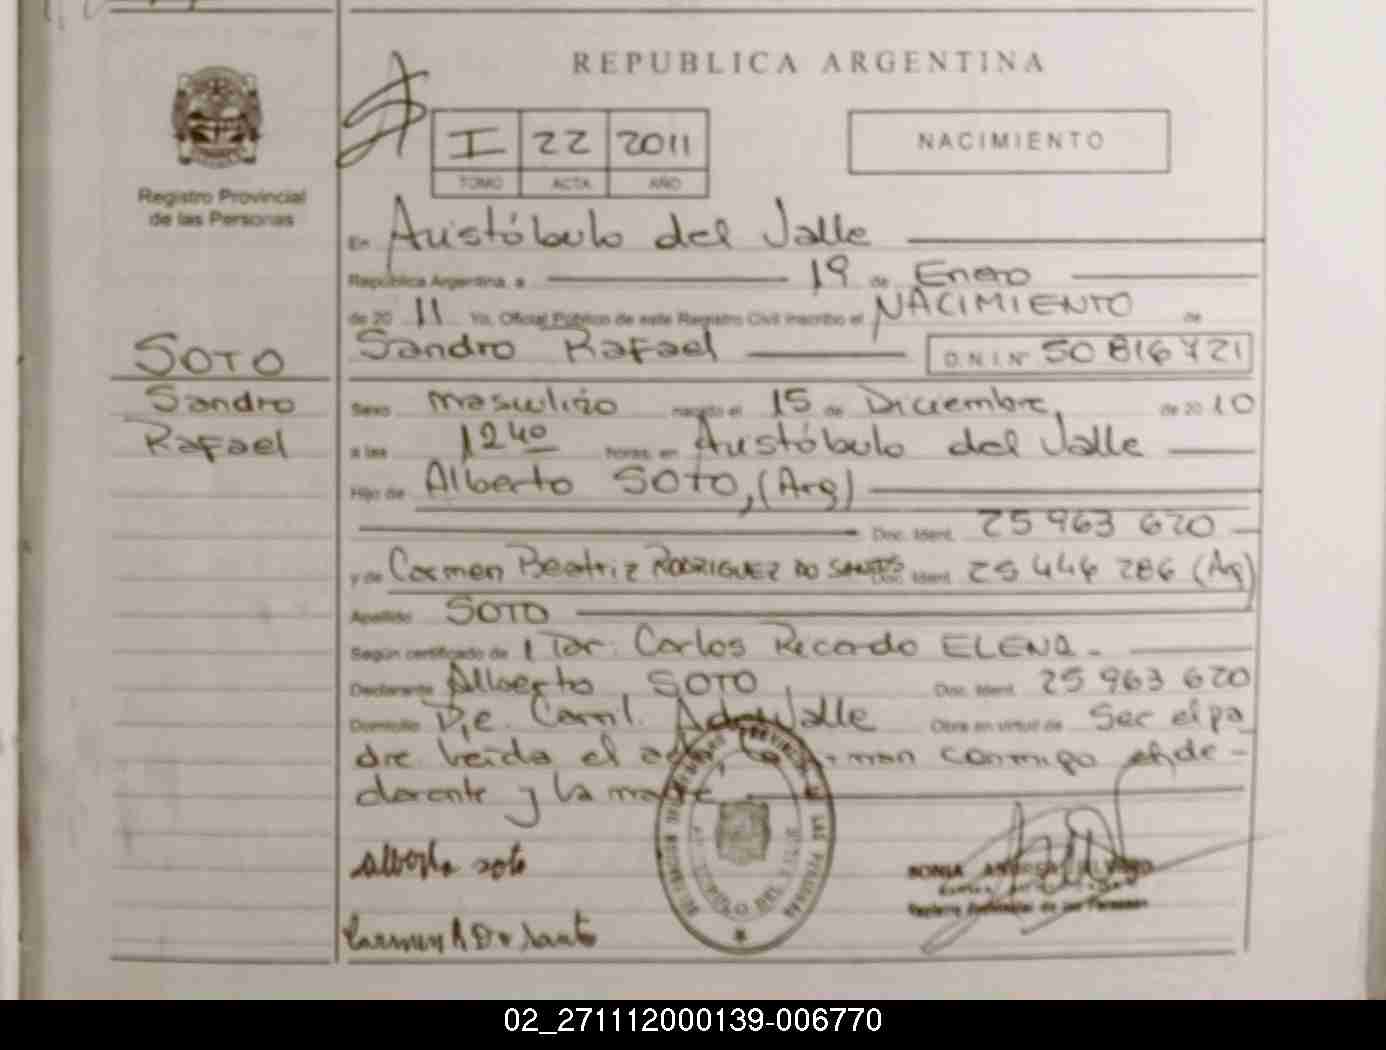 REPUBLICA ARGENTINA
I 22 2011
TOMO ACTA AÑO
NACIMIENTO
Registro Provincial
de las Personas
En Aristóbulo del Valle
República Argentina, a 19 de Enero
de 20 11 Yo, Oficial Público de este Registro Civil inscribo el NACIMIENTO de
Sandro Rafael D.N.I. Nº 50 816 721
SOTO
Sandro
Rafael
Sexo masculino nacido el 15 de Diciembre, de 20 10
a las 12 40 horas, en Aristóbulo del Valle
Hijo de Alberto SOTO, (Arg)
Doc. Ident. 25 963 620
y de Carmen Beatriz RODRIGUEZ DO SANTOS Doc. Ident. 25 446 286 (Arg)
Apellido SOTO
Según certificado de Dr. Carlos Ricardo ELENA -
Declarante Alberto SOTO, Doc. Ident. 25 963 620
Domicilio Pje. A del Valle Obra en virtud de Ser el pa
dre leída el conmigo el de-
clarante y la madre,
Alberto soto
Carmen Do Santo
SONIA
de las Personas
02_271112000139-006770